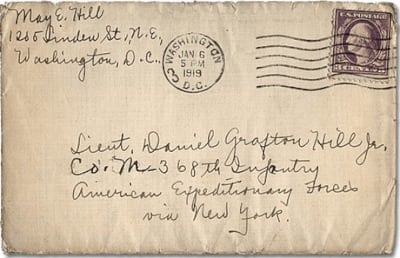 May E. Hill
1205 Linden St, N.E,
Washington, D.C.
WASHINGTON
JAN 6
5 PM
1919
D.C.
3
U.S. POSTAGE
CENTS
Lieut. Daniel Grafton Hill Jr.
Co. M-368th Infantry
American Expeditionary Forces
via New York.